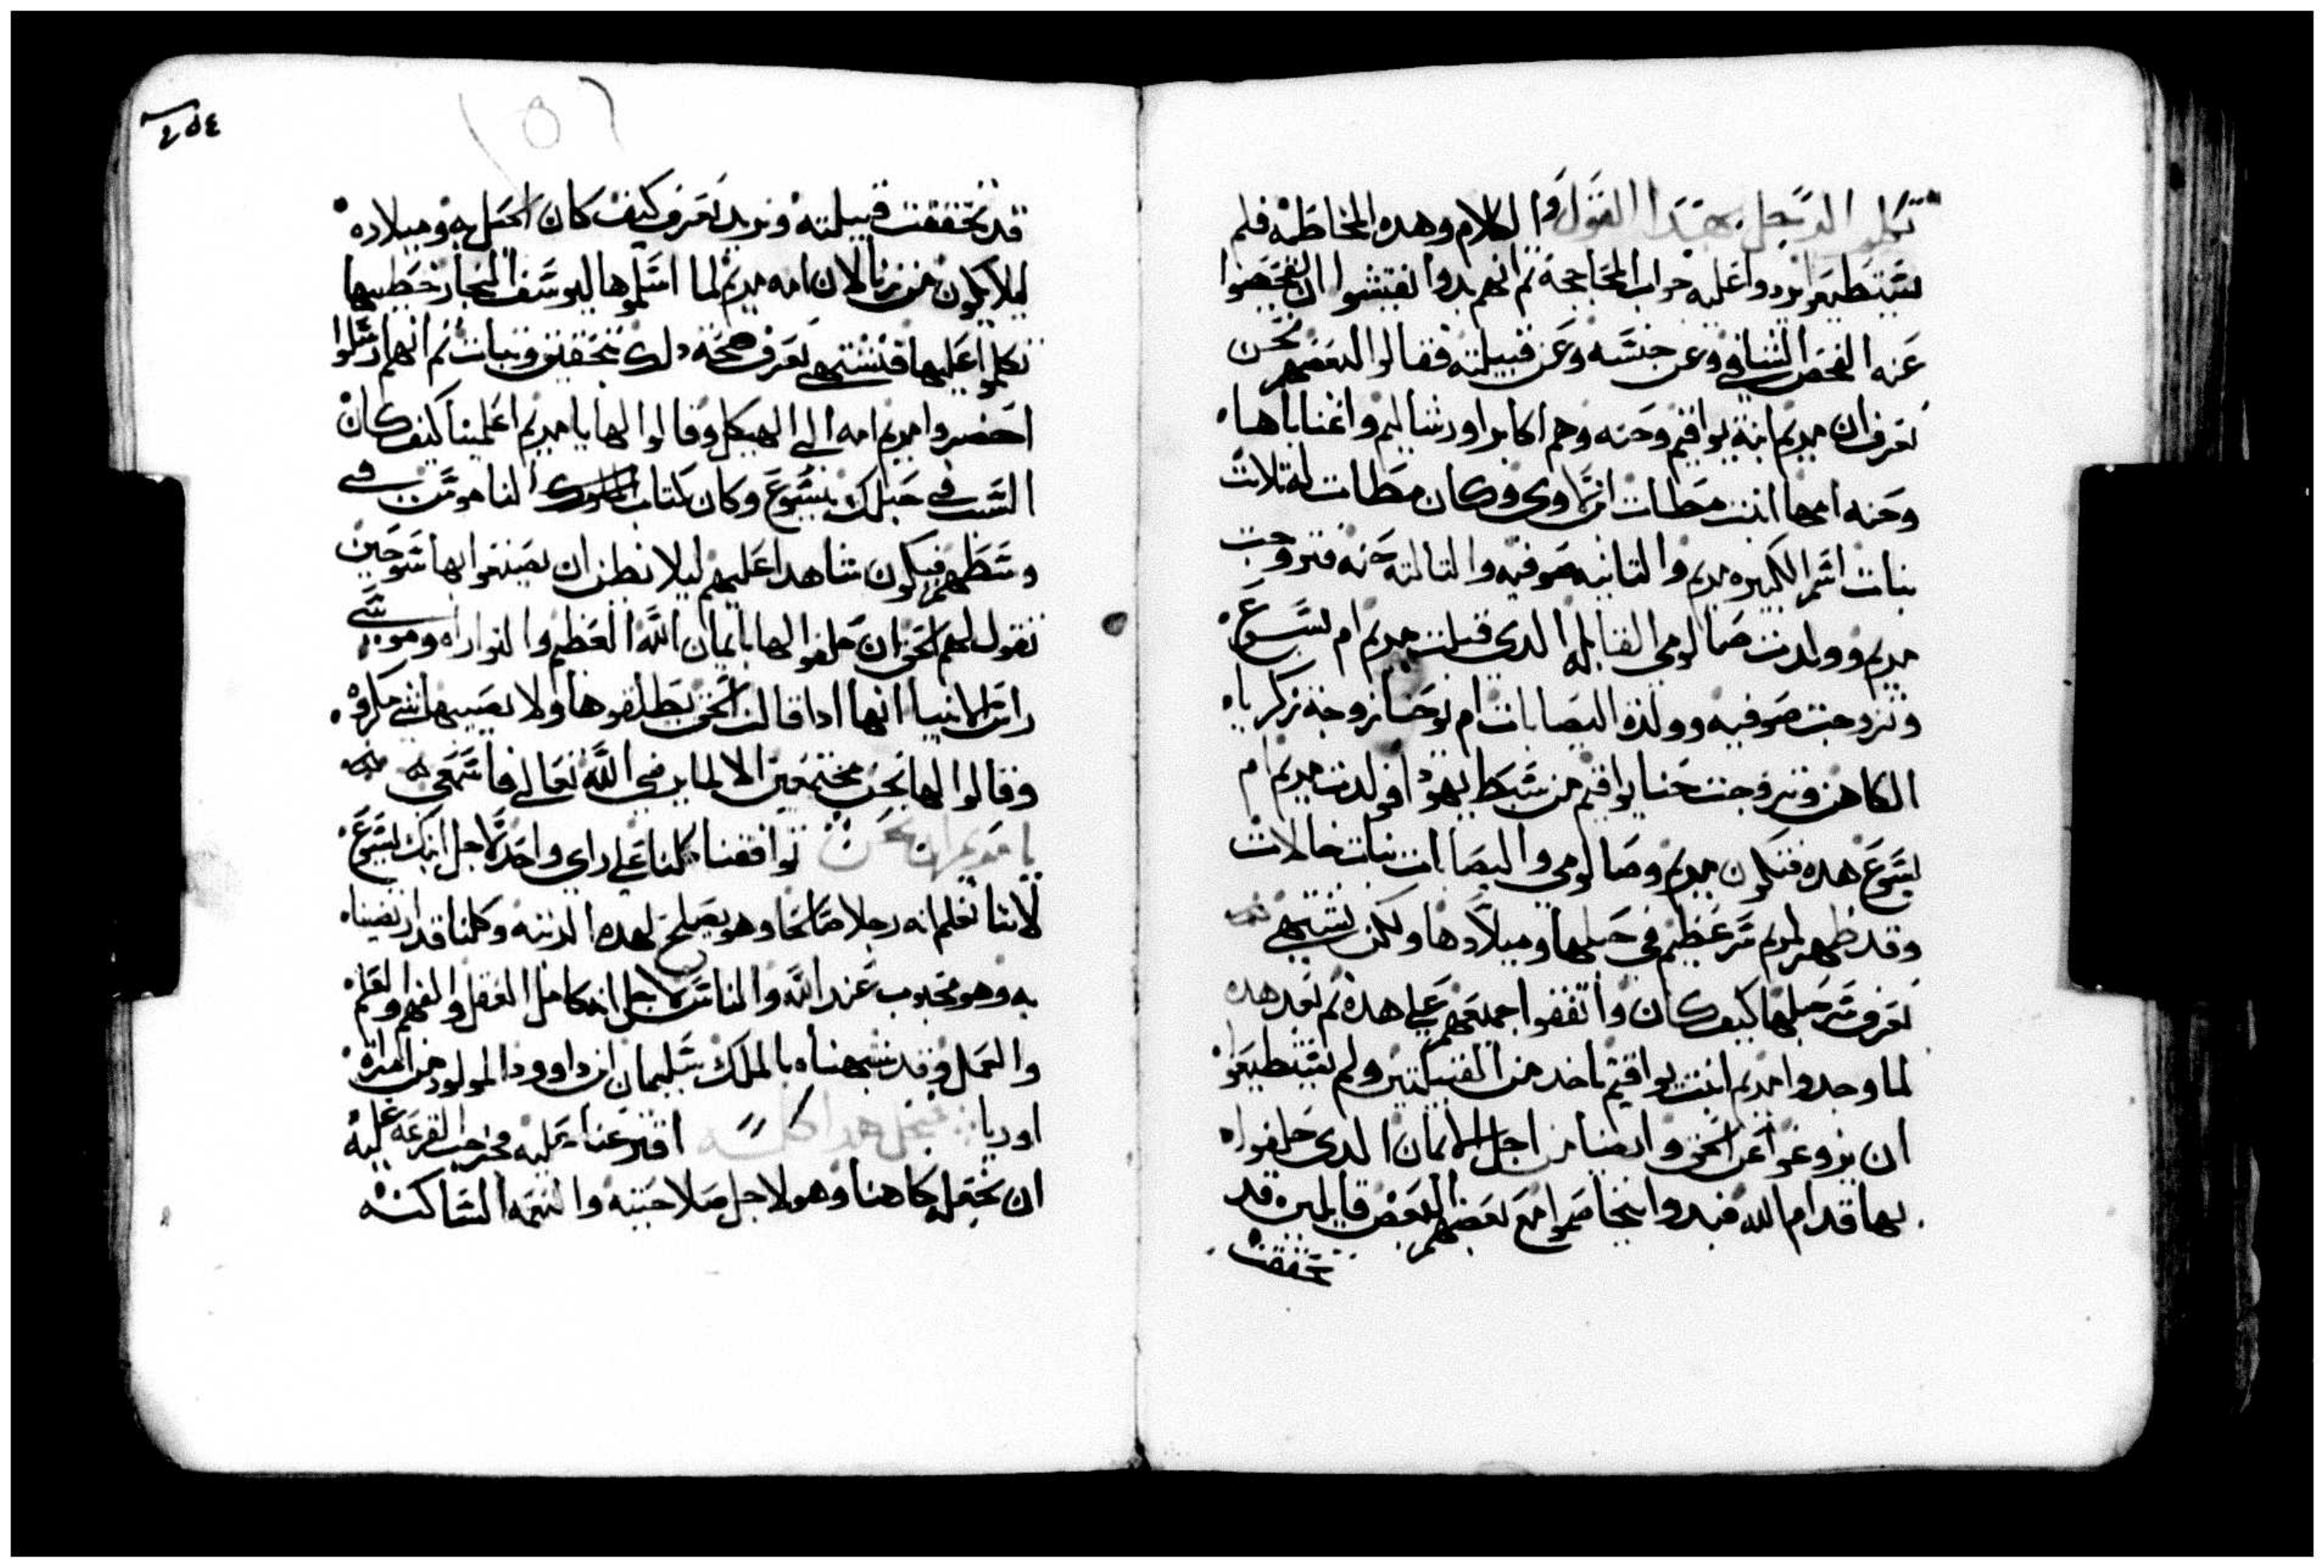 تكلم الرجل بهدا القول والكلام وهده المخاطبه فلم
يستطيعوا يردوا عليه جواب المحاججة تم انهم بدوا يفتشوا ان يفحصوا
عنه الفحص الشافي وعن جنسه وعن قبيلته فقالوا لبعضهم نحن
نعرف ان مريم ابنة يواقيم وحنه وهم اكابر اورشاليم واغناياها
وحنه امها ابنت مطات اللاوي وكان مطات له تلات
بنات اسم الكبيره مريم والتانيه صوفيه والتالته حنه فتزوجت
مريم وولدت صالومي القابله الدي قبلت مريم ام يسوع
وتزوجت صوفيه وولدة اليصابات ام يوحنا زوجة زكرياه
الكاهن وتزوجت حنا يواقيم من سبط يهودا فولدت مريم ام
يسوع هده فتكون مريم وصالومي واليصابات بنات خالات
وقد ظهر لمريم سر عظيم في حبلها وميلادها ولكن نشتهي
نعرف سر حبلها كيف كان واتفقوا جميعهم علي هده تم بعد هده
لما وجدوا مريم ابنت يواقيم ناخد من الفتيكتير ولم يستطيعوا
ان يزوغوا عن الحق وايضا من اجل الايمان الدي حلفواه
بها قدام الله فبدوا يتخاصموا مع بعضهم البعض قايلين قد
تحققت
٤٥٤
قد تحققت قبيلته ونريد نعرف كيف كان الحبل به وميلاده
ليلا يكون من زنا لان امه مريم لما اسلموها ليوسف النجار خطيبها
تكلموا عليها فنشتهي نعرف صحة دلك بتحقيق وتبات تم انهم ارسلوا
احضروا مريم امه الي الهيكل وقالوا لها يا مريم اعلمينا كيف كان
السبب في حبلك بيسوع وكان كتاب التوراه الناموس في
وسطهم فيكون شاهدا عليهم ليلا نظن ان يصنعوا بها سو حين
تقول لهم الحق ان حلفوا لها بايمان الله العظيم والتوراه وموسي
راس الانبيا انها ادا قالت الحق يطلقوها ولا يصيبها شي مكروه
وقالوا لها نحن مجتمعين الا لما يرضي الله تعالي فاسمعي
يا مريم اننا نحن توافقنا كلنا علي راي واحد لاجل ابنك يسوع
لاننا نعلم انه رجلا صالحا وهو يصلح لهده الرتبه وكلنا قد ارتضيناه
به وهو محبوب عند الله والناس لاجل انه كامل العقل والفهم والعلم
والعمل وقد شبهناه بالملك سليمان ابن داوود المولود من امراة
اوريا فنجل هدا كله اقترعنا عليه فخرجت القرعه عليه
ان نجعله كاهنا وهو لاجل صلاحيته والنعمه الساكنه